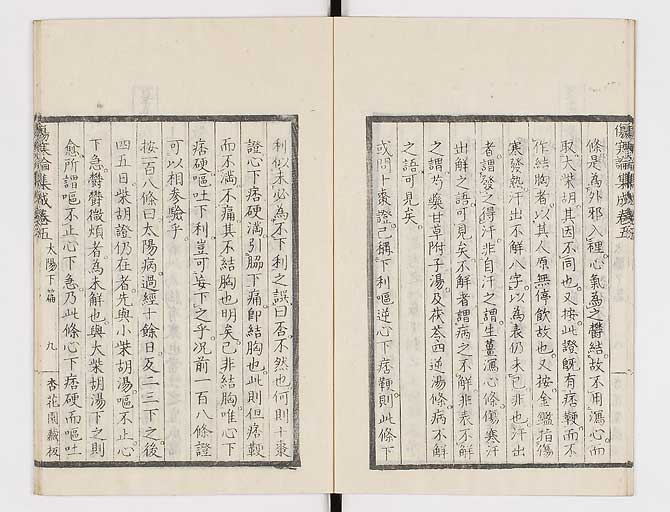 條是為外邪入裡心氣為之鬱結故不用瀉心而
取大柴胡其因不同也又按此證既有痞鞕而不
作結胸者以其人原無停飲故也又按金鑑指傷
寒發熱汗出不解八字以為表仍未已非也汗出
者謂發之得汗非自汗之謂生薑瀉心條傷寒汗
出解之語可見矣不解者謂病之不解非表不解
之謂芍藥甘草附子湯及茯苓四逆湯條病不解
之語可見矣
或問十棗證已稱下利嘔逆心下痞鞕則此條下
傷寒論集成卷五
利似未必為不下利之誤曰否不然也何則十棗
證心下痞硬滿引脇下痛即結胸也此則但痞鞕
而不滿不痛其不結胸也明矣已非結胸唯心下
痞硬嘔吐下利豈可妄下之乎況前一百八條證
可以相參驗乎
按一百八條曰太陽病過經十餘日反二三下之後
四五日柴胡證仍在者先與小柴胡湯嘔不止心
下急鬱鬱微煩者為未解也與大柴胡湯下之則
愈所謂嘔不止心下急乃此條心下痞硬而嘔吐
傷寒論集成卷五 太陽下篇 九 杏花園藏板